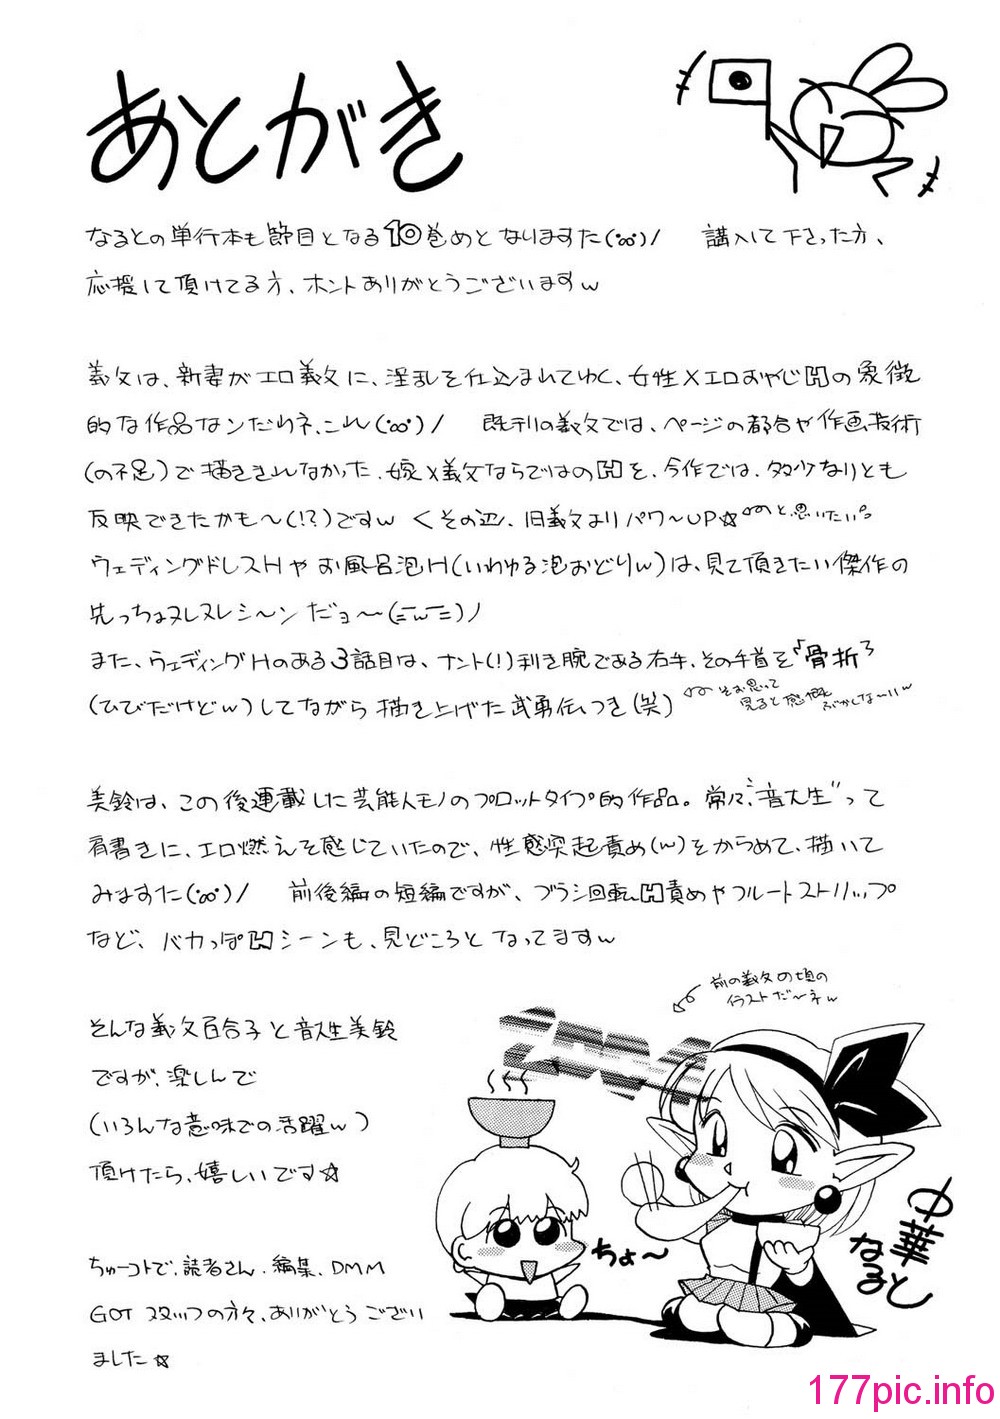 あとがき
なるとの単行本も節目となる10巻めとなりますた(°∞°)/　購入して下さった方、
応援して頂けてる方、ホントありがとうございますw
義父は、新妻がエロ義父に、淫乱を仕込まれてゆく、女性×エロおやじHの象徴
的な作品なンだわネ、これ(°∞°)/　既刊の義父では、ページの都合や作画技術
(の不足)で描ききれなかった、嫁×義父ならではのHを、今作では、多少なりとも
反映できたかも〜(!?)ですw くその辺、旧義父よりパワ〜UP☆ と思いたい。
ウェディングドレスHやお風呂泡H(いわゆる泡おどりw)は、見て頂きたい傑作の
先っちょヌレヌレシ〜ンだョ〜(ニwニ)ノ
また、ウェディングHのある3話目は、ナント(!)利き腕である右手、その手首を「骨折」
(ひびだけどw)してながら描き上げた武勇伝つき(笑)
そお思って
見ると感慨
ぶかしな〜いw
美鈴は、この後連載した芸能人モノのプロットタイプ的作品。常々、"音大生"って
肩書きに、エロ燃えを感じていたので、性感突起責め(w)をからめて、描いて
みますた(°∞°)/　前後編の短編ですが、ブラシ回転H責めやフルートストリップ
など、バカっぽHシーンも、見どころとなってますw
前の義父の頃の
イラストだ〜ネw
そんな義父百合子と音大生美鈴
ですが、楽しんで
(いろんな意味での活躍w)
頂けたら、嬉しいです☆
ちょ〜
中華
なると
ちゅーコトで、読者さん、編集、DMM
GOT スタッフの方々、ありがとうござい
ました☆
177pic.info